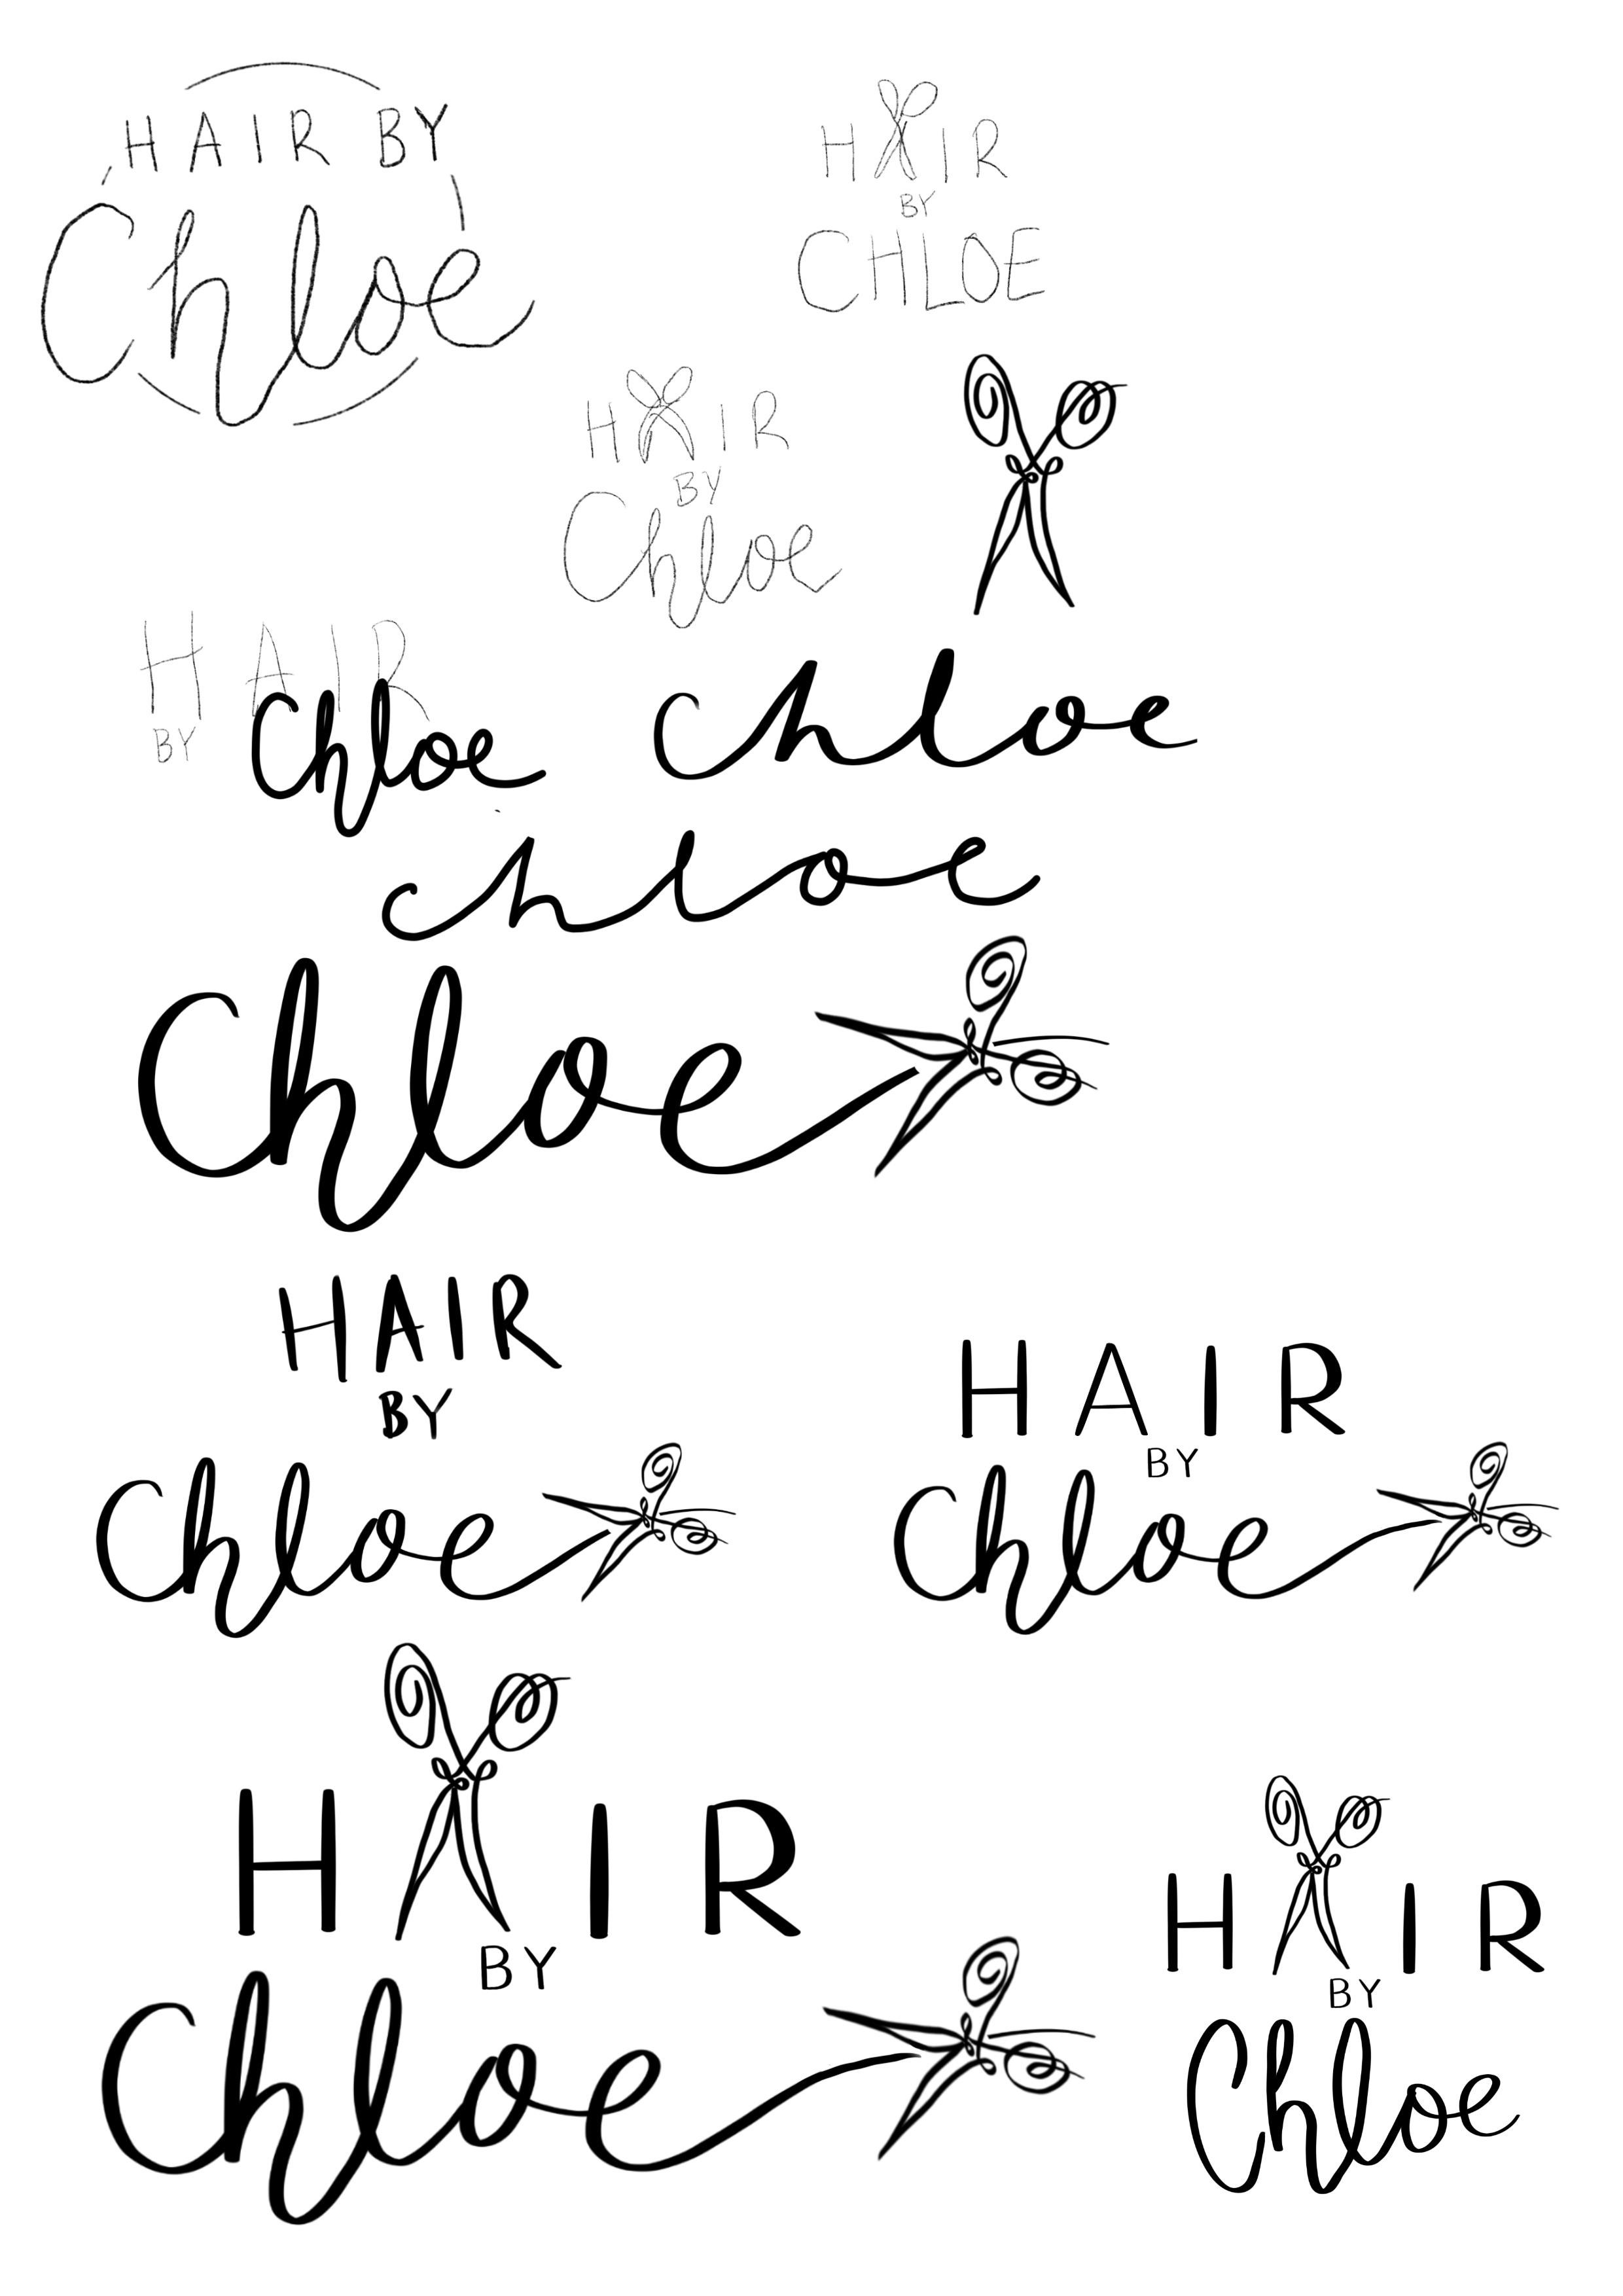 HAIR BY
Chloe
HAIR
BY
CHLOE
HAIR
BY
Chloe
HAIR
BY
Chloe
chloe
chloe
Chloe
HAIR
BY
Chloe
HAIR
BY
Chloe
HAIR
BY
Chloe
HAIR
BY
Chloe